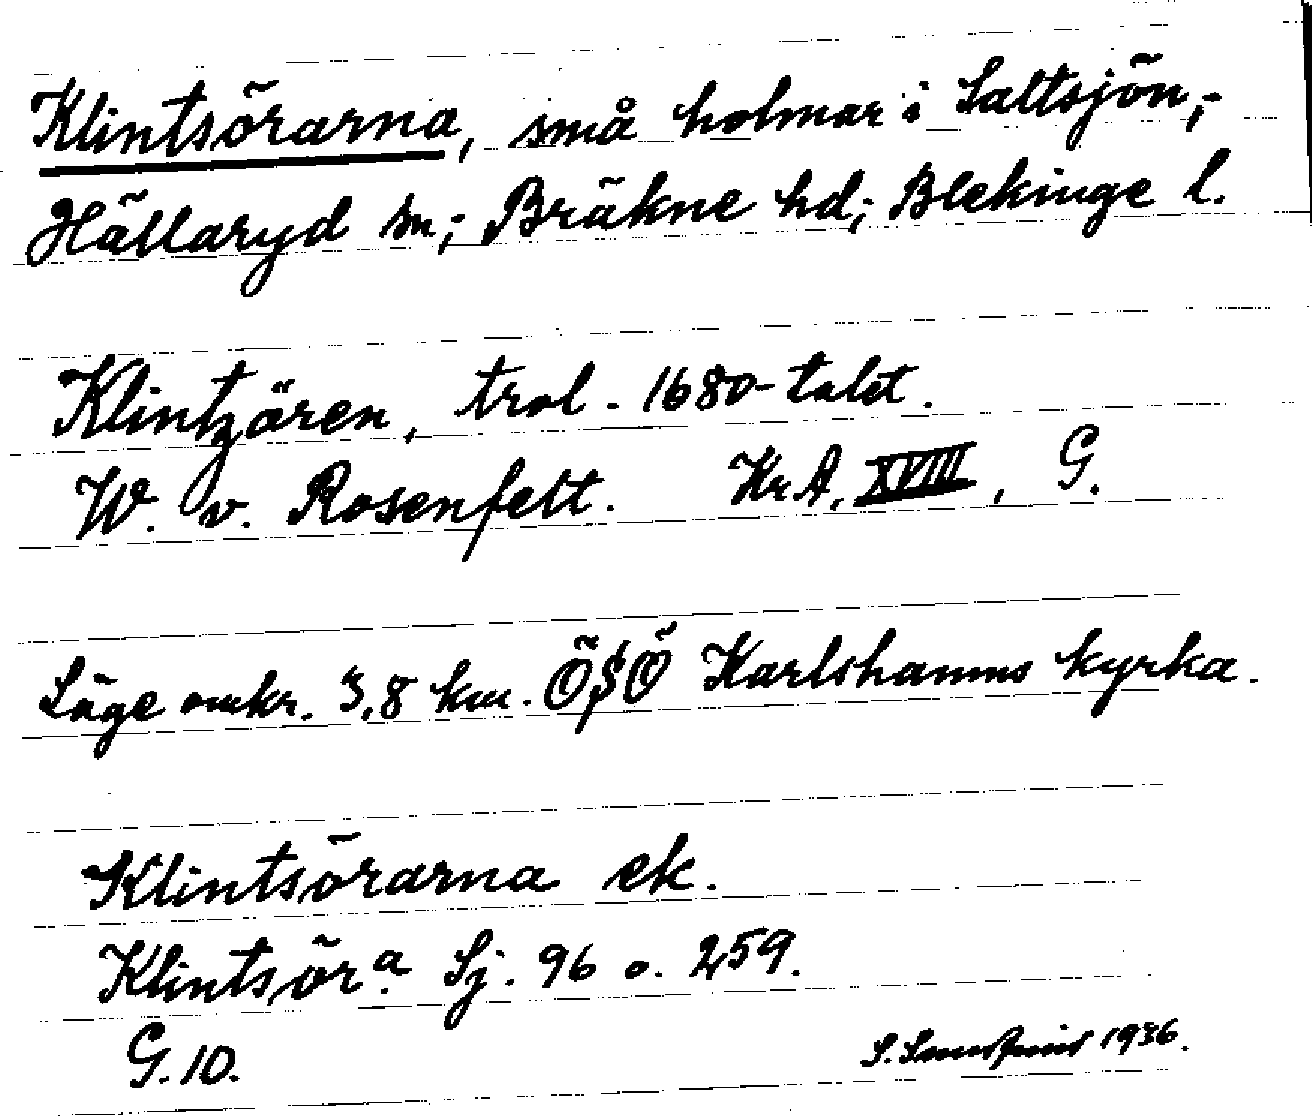 Klintsörarna, små holmar i Saltsjön,
Hällaryd sn; Bräkne hd; Blekinge l.
Klintzören, trol. 1680-talet.
W. v. Rosenfelt. Kr A, XVIII, G.
Läge omkr. 3,8 km. ÖSÖ Karlshamns kyrka.
Klintsörarna ek.
Klintsör.a Sj. 96 o. 259.
G. 10.
S. 1936.